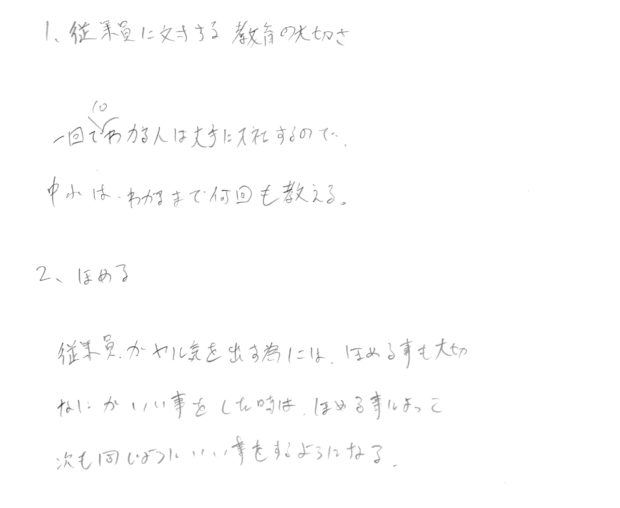 1、従業員に対する教育の大切さ
一回で10わかる人は大手に入社するので、
中小は、わかるまで何回も教える。
2、ほめる
従業員がヤル気を出す為には、ほめる事も大切
なにかいい事をした時は、ほめる事によって
次も同じようにいい事をするようになる。